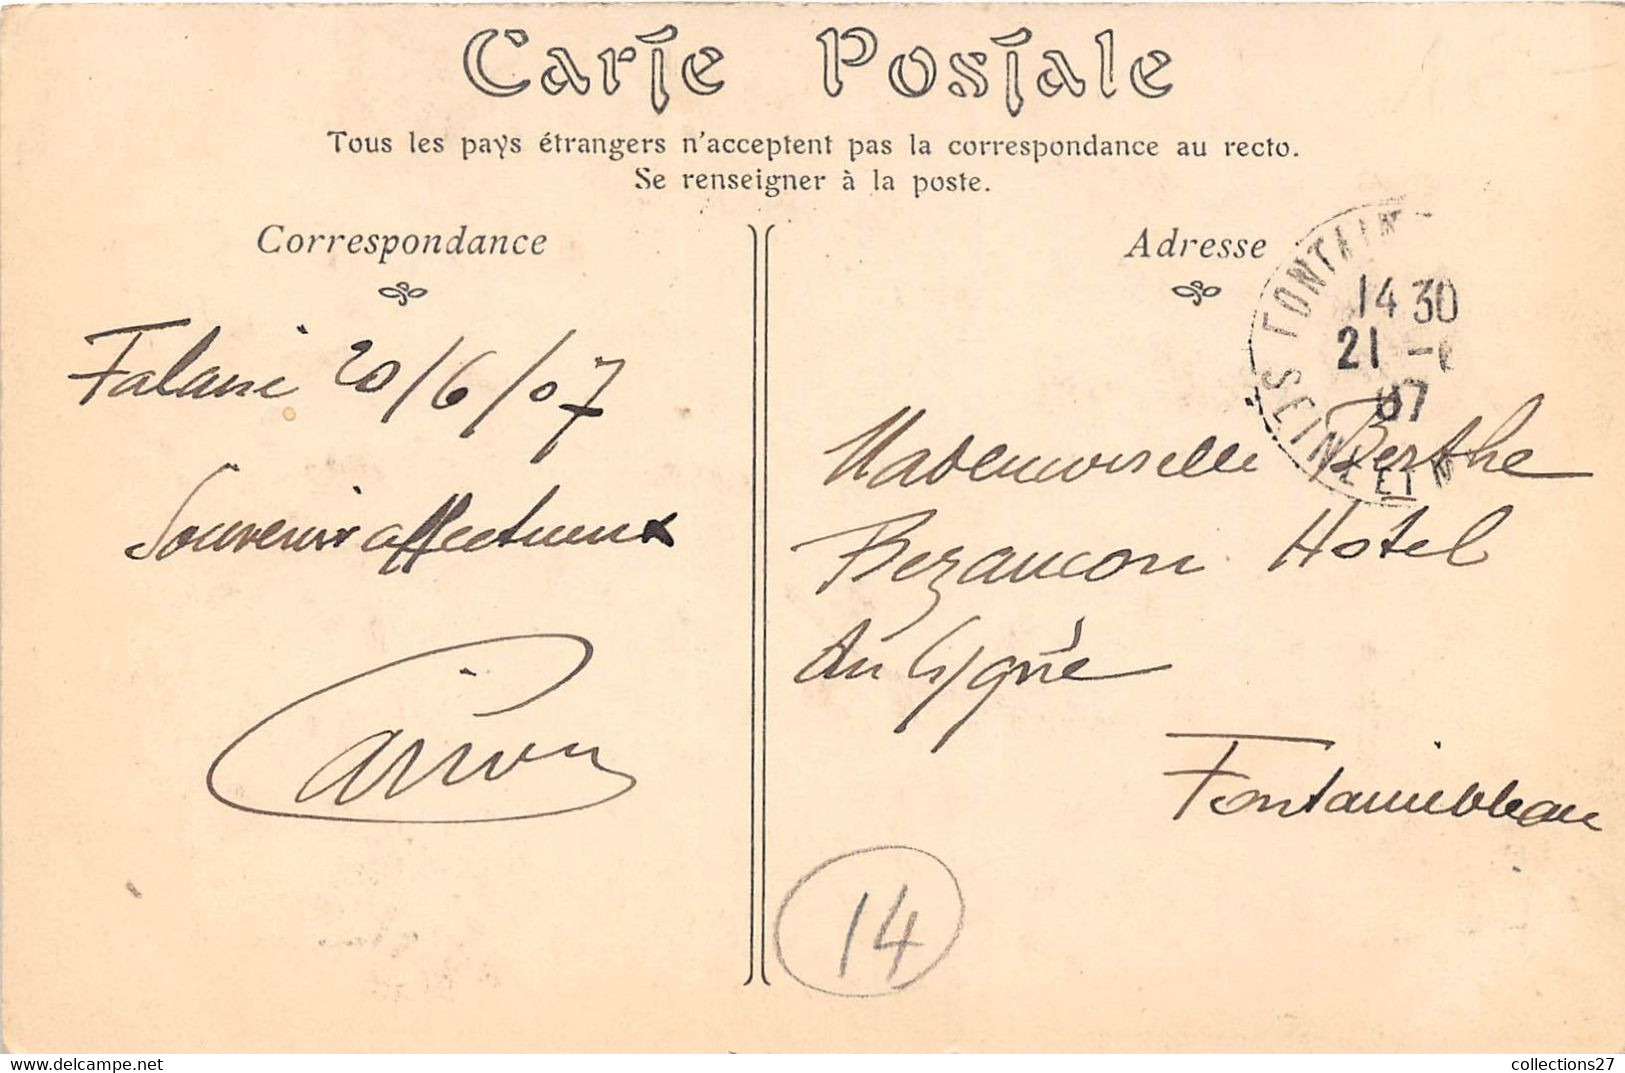 Carte Postale
Tous les pays étrangers n'acceptent pas la correspondance au recto.
Se renseigner à la poste.
Correspondance
Adresse
FONTAIN
SEINE ET M
14 30
21 -6
07
Falaise 20/6/07
Souvenir affectueux
Carron
Mademoiselle Berthe
Bezancon Hotel
du Cygne
Fontainebleau
14
collections27